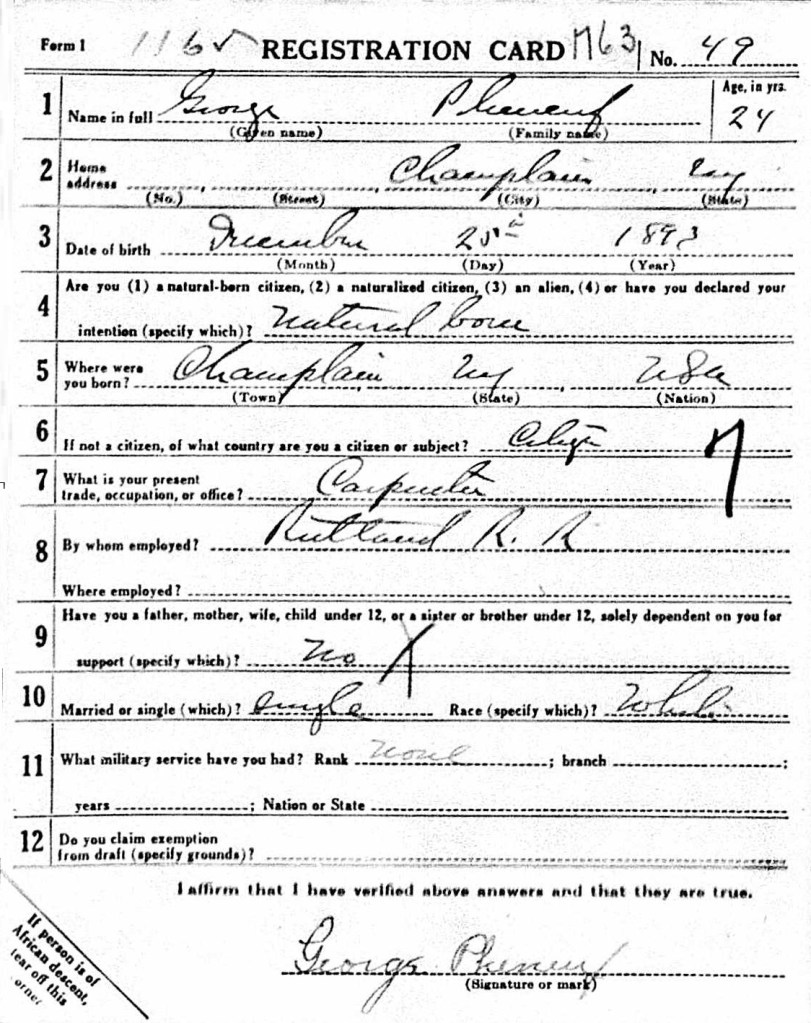 Form 1 1165 REGISTRATION CARD M63 No. 49
1 Name in full George Pheneuf Age, in yrs. 24
(Given name) (Family name)
2 Home address Champlain NY
(No.) (Street) (City) (State)
3 Date of birth December 25th 1893
(Month) (Day) (Year)
4 Are you (1) a natural-born citizen, (2) a naturalized citizen, (3) an alien, (4) or have you declared your
intention (specify which)? Natural born
5 Where were you born? Champlain NY USA
(Town) (State) (Nation)
6 If not a citizen, of what country are you a citizen or subject? Citizen
7 What is your present trade, occupation, or office? Carpenter
8 By whom employed? Rutland R. R
Where employed?
9 Have you a father, mother, wife, child under 12, or a sister or brother under 12, solely dependent on you for
support (specify which)? No X
10 Married or single (which)? Single Race (specify which)? White
11 What military service have you had? Rank None ; branch ;
years ; Nation or State
12 Do you claim exemption from draft (specify grounds)?
I affirm that I have verified above answers and that they are true.
George Pheneuf
(Signature or mark)
If person is of
African descent,
tear off this
corner